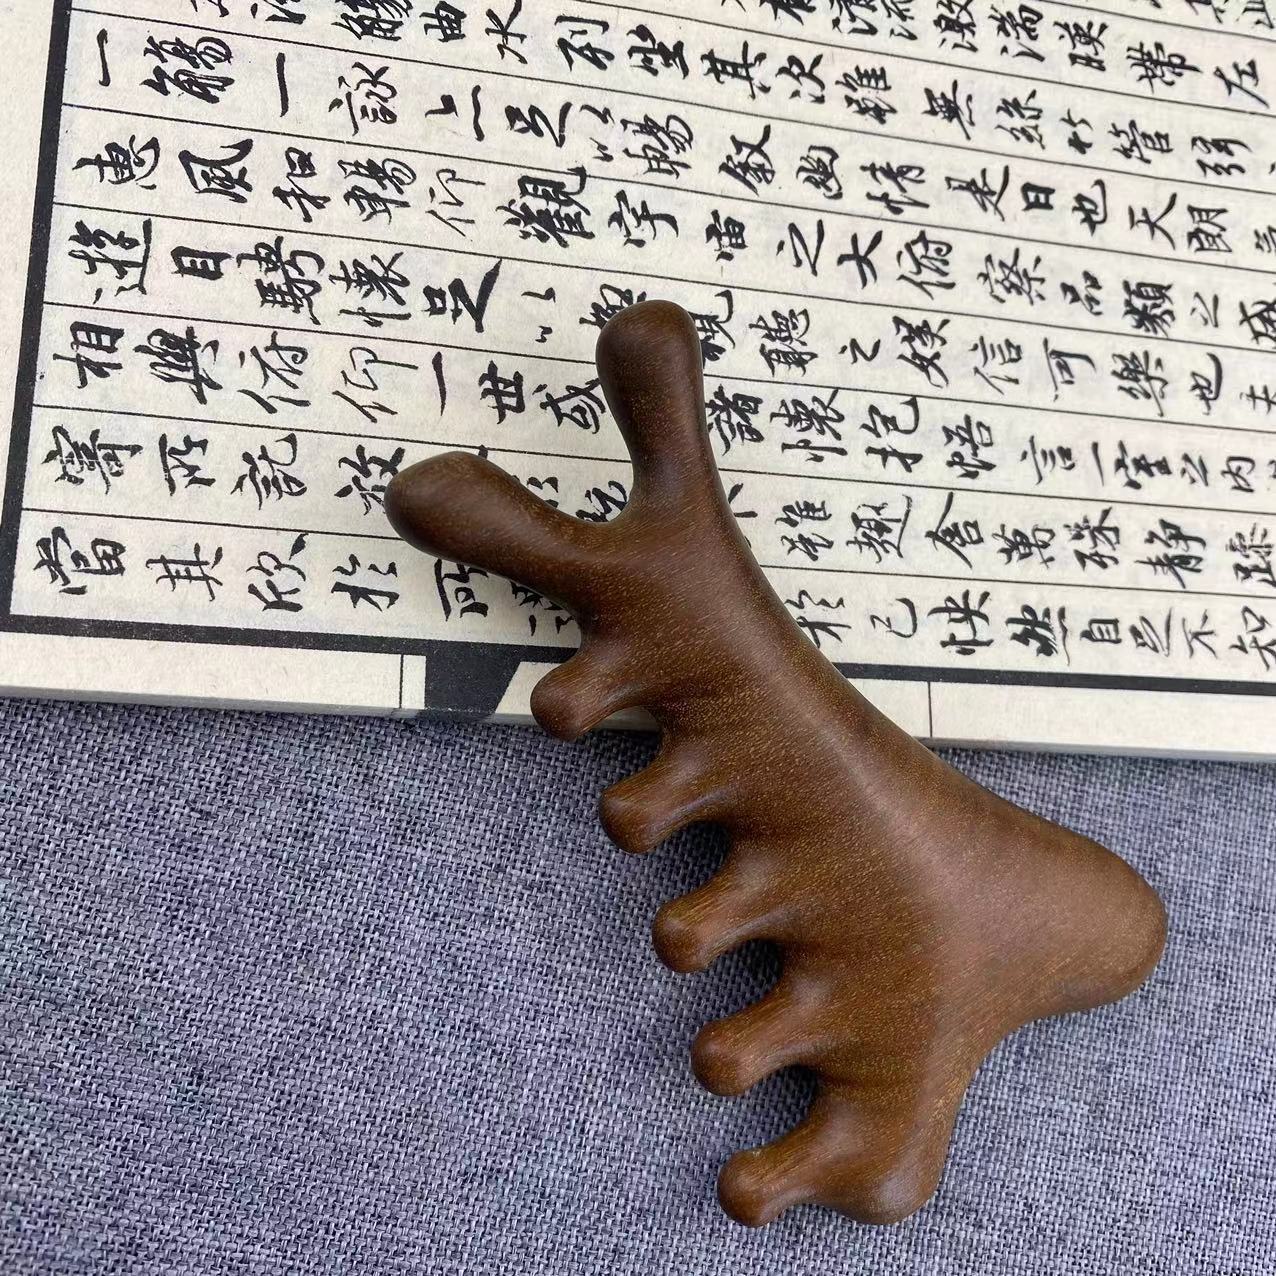 有清流激湍暎帶左
觴曲水列坐其次雖無絲竹管弦
一觴一詠亦足以暢敘幽情是日也天朗氣
惠風和暢仰觀宇宙之大俯察品類之盛
遊目騁懷足以視聽之娛信可樂也夫
相與俯仰一世或諸懷抱悟言一室之內
寄所託放雖趣舍萬殊靜躁
當其欣於所遇於己怏然自足不知